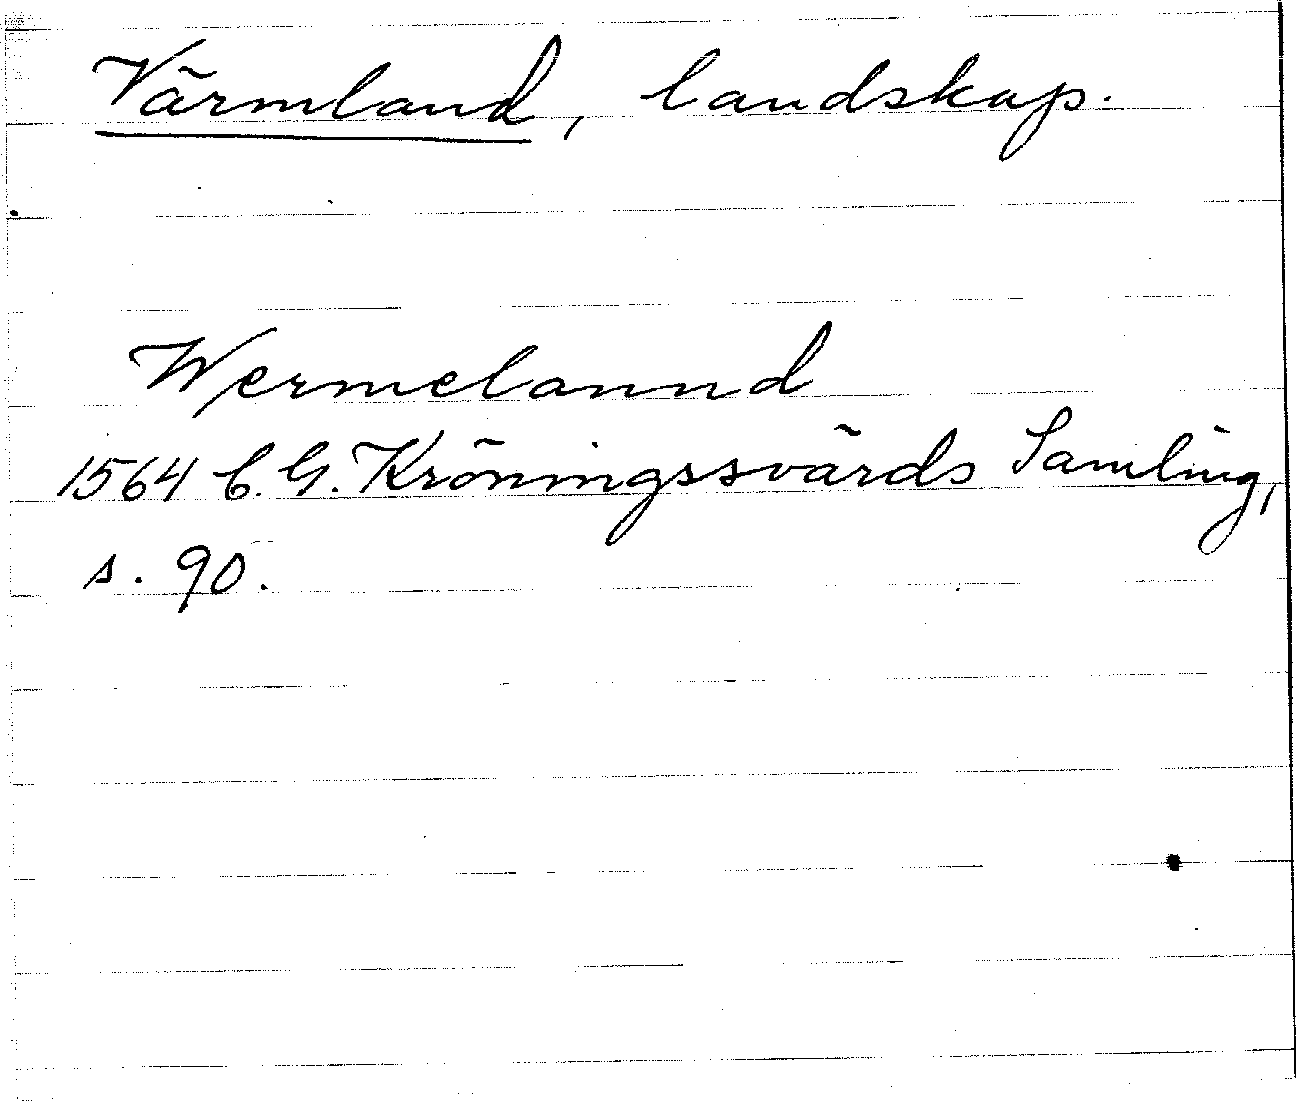 Värmland, landskap.
Wermelannd
1564 C. G. Kröningssvärds Samling,
s. 90.